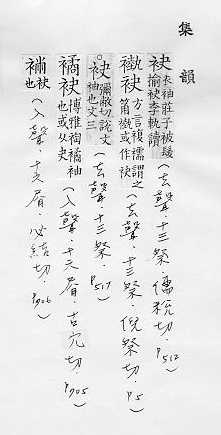 集韻
袂衣袖莊子被髮揄袂李軌讀(去聲.十三祭.儒稅切.P512
襼方言複襦謂之筩襼或作袂(去聲.十三祭.倪祭切.P5
。袂彌敝切說文袖也文三(去聲.十三祭.P517
襦袂博雅裪襦袖也或从夬(入聲.十六屑.古穴切.P705
袂也(入聲.十六屑.必結切.P706